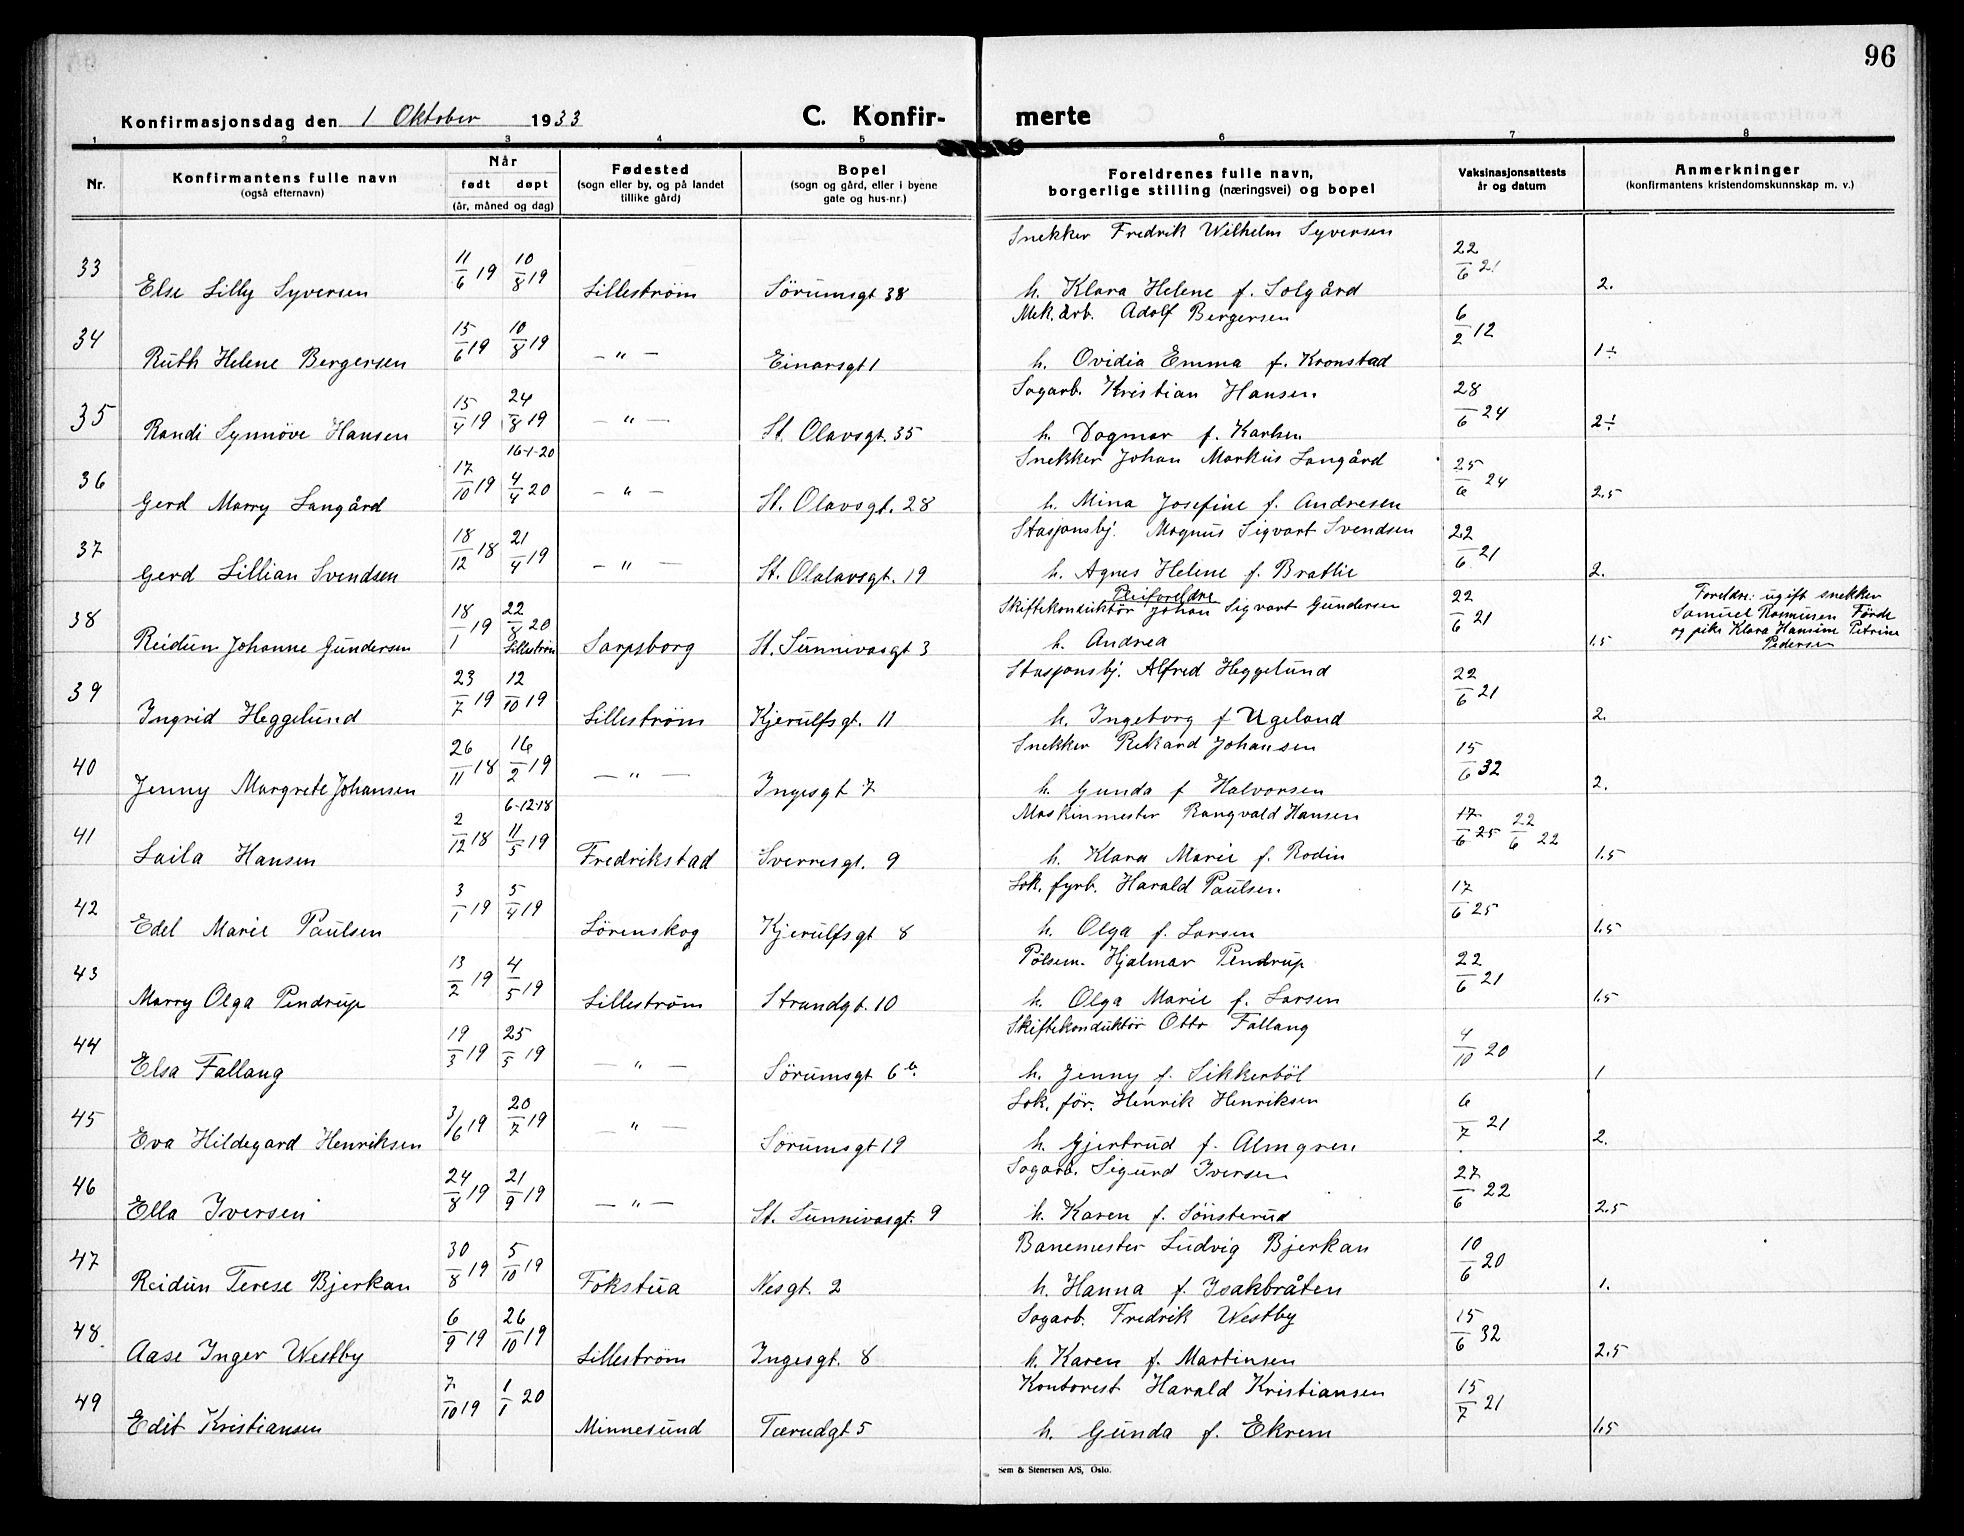 96
Konfirmasjonsdag den 1 Oktober 1933 C. Konfir- merte
1 2 3 4 5 6 7 8
Nr. Konfirmantens fulle navn (også efternavn) Når født døpt (år, måned og dag) Fødested (sogn eller by, og på landet tillike gård) Bopel (sogn og gård, eller i byene gate og hus-nr.) Foreldrenes fulle navn, borgerlige stilling (næringsvei) og bopel Vaksinasjonsattests år og datum Anmerkninger (konfirmantens kristendomskunnskap m. v.)
Snekker Fredrik Wilhelm Syversen
33 Else Lilly Syversen 11/6 19 10/8 19 Lillestrøm Sørumsgt 38 h. Klara Helene f. Solgård 22/6 21 2.
Mek. arb. Adolf Bergersen
34 Ruth Helene Bergersen 15/6 19 10/8 19 — " — Einarsgt 1 h. Ovidia Emma f. Kronstad 6/2 12 1÷
Sagarb. Kristian Hansen
35 Randi Synnøve Hansen 15/4 19 24/8 19 — " — St. Olavsgt. 35 h. Dagmar f. Karlsen 28/6 24 2÷
16-1-20 Snekker Johan Markus Langård
36 Gerd Marry Langård 17/10 19 4/4 20 — " — St. Olavsgt. 28 h. Mina Josefine f. Andresen 25/6 24 2.5
Stasjonsbj. Magnus Sigvart Svendsen
37 Gerd Lillian Svendsen 18/12 18 21/4 19 — " — St. Olalavsgt. 19 h. Agnes Helene f. Bratlie 22/6 21 2.
Pleiforeldre
Skiftekonduktør Johan Sigvart Gundersen
38 Reidun Johanne Gundersen 18/1 19 22/8 20 Lillestrøm Sarpsborg St. Sunnivasgt 3 h. Andrea 22/6 21 1.5
Foreldre: ugift snekker
Samuel Rasmusen Førde
og pike Klara Hansine Petrine
Pedersen
Stasjonsbj. Alfred Heggelund
39 Ingrid Heggelund 23/7 19 12/10 19 Lillestrøm Kjerulfsgt. 11 h. Ingeborg f Ugeland 22/6 21 2.
Snekker Rikard Johansen
40 Jenny Margrete Johansen 26/11 18 16/2 19 — " — Ingesgt 7 h. Gunda f Halvorsen 15/6 32 2.
6-12-18 Maskinmester Rangvald Hansen
41 Laila Hansen 2/12 18 11/5 19 Fredrikstad Sverresgt. 9 h. Klara Marie f. Rodin 17/6 25 22/6 22 1.5
Lok. fyrb. Harald Paulsen
42 Edel Marie Paulsen 3/1 19 5/4 19 Lørenskog Kjerulfsgt 8 h. Olga f. Larsen 17/6 25 1.5
Pølsem. Hjalmar Pendrup
43 Marry Olga Pendrup 13/2 19 4/5 19 Lillestrøm Strandgt. 10 h. Olga Marie f. Larsen 22/6 21 1.5
Skiftekonduktør Otto Fallang
44 Elsa Fallang 19/3 19 25/5 19 — " — Sørumsgt 6 b. h. Jenny f. Sikkerbøl 4/10 20 1
Lok. før. Henrik Henriksen
45 Eva Hildegard Henriksen 3/6 19 20/7 19 — " — Sørumsgt 19 h. Gjertrud f. Almgren 6/7 21 2.
Sagarb. Sigurd Iversen
46 Ella Iversen 24/8 19 21/9 19 — " — St. Sunnivasgt. 9 h. Karen f. Sønsterud 27/6 22 2.5
Banemester Ludvig Bjerkan
47 Reidun Terese Bjerkan 30/8 19 5/10 19 Fokstua Nesgt. 2 h. Hanna f. Isakbråten 10/6 20 1.
Sagarb. Fredrik Westby
48. Aase Inger Westby 6/9 19 26/10 19 Lillestrøm Ingesgt. 8 h. Karen f. Martinsen 15/6 32 2.5
Kontorist Harald Kristiansen
49 Edit Kristiansen 7/10 19 1/1 20 Minnesund Tærudgt 5 h. Gunda f. Ekrem 15/7 21 1.5
Sem & Stenersen A/S, Oslo.